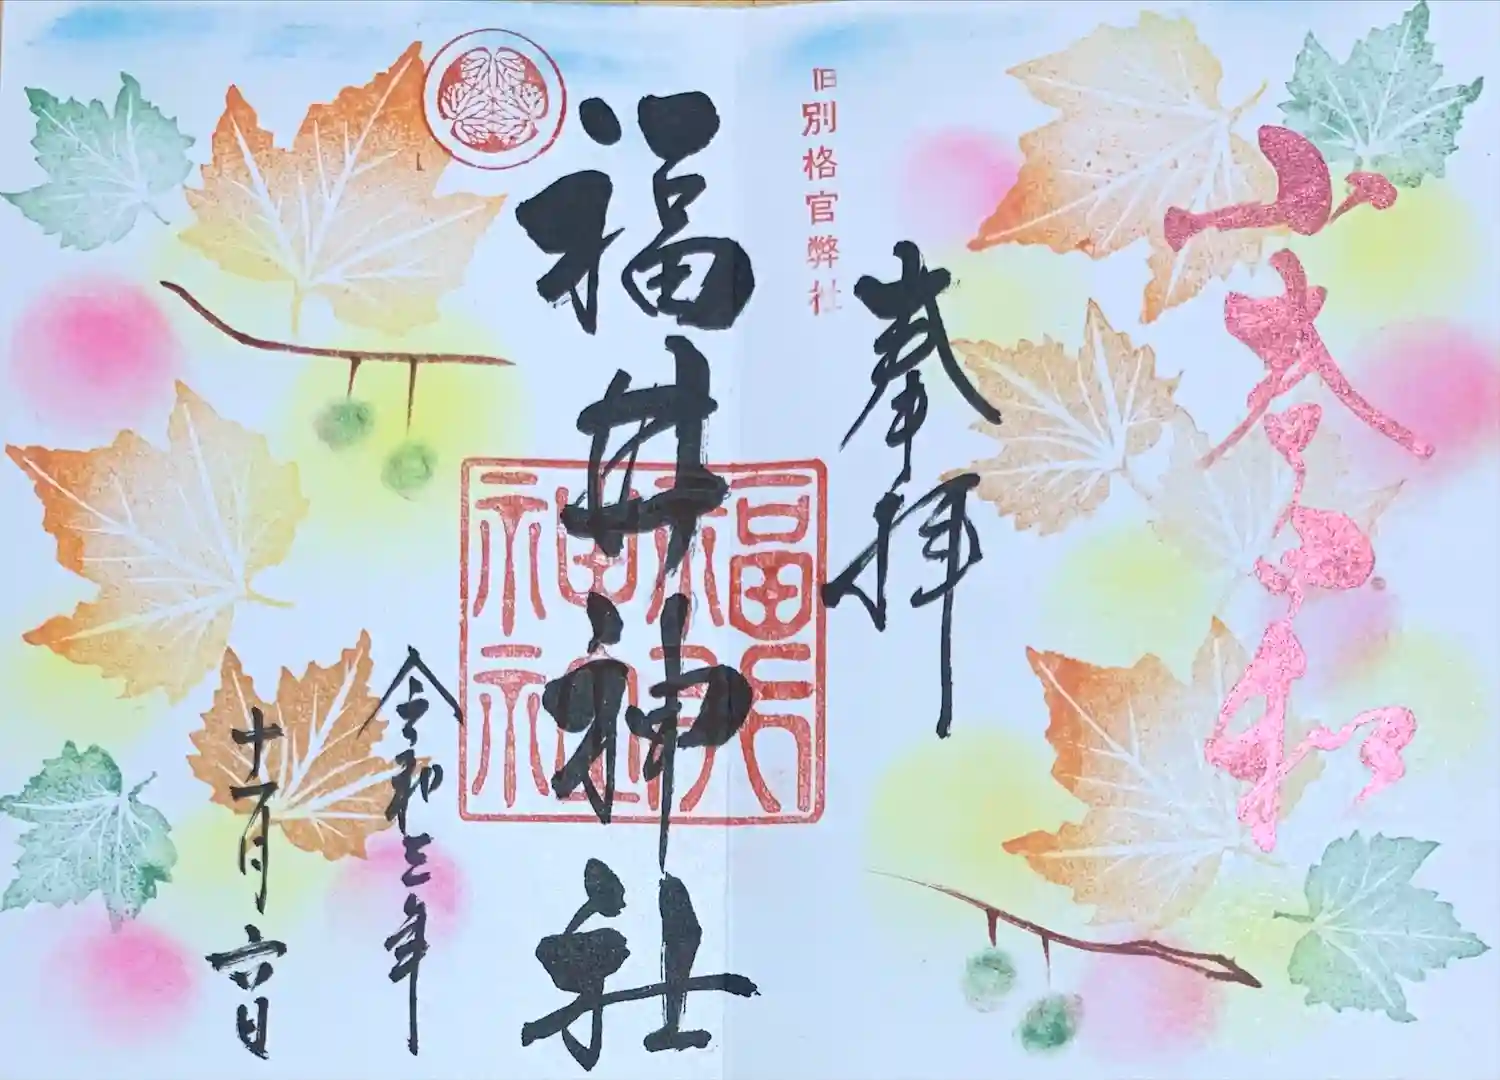 小春日和
奉拝
旧別格官弊社
福井神社
福井神社
令和三年
十一月六日